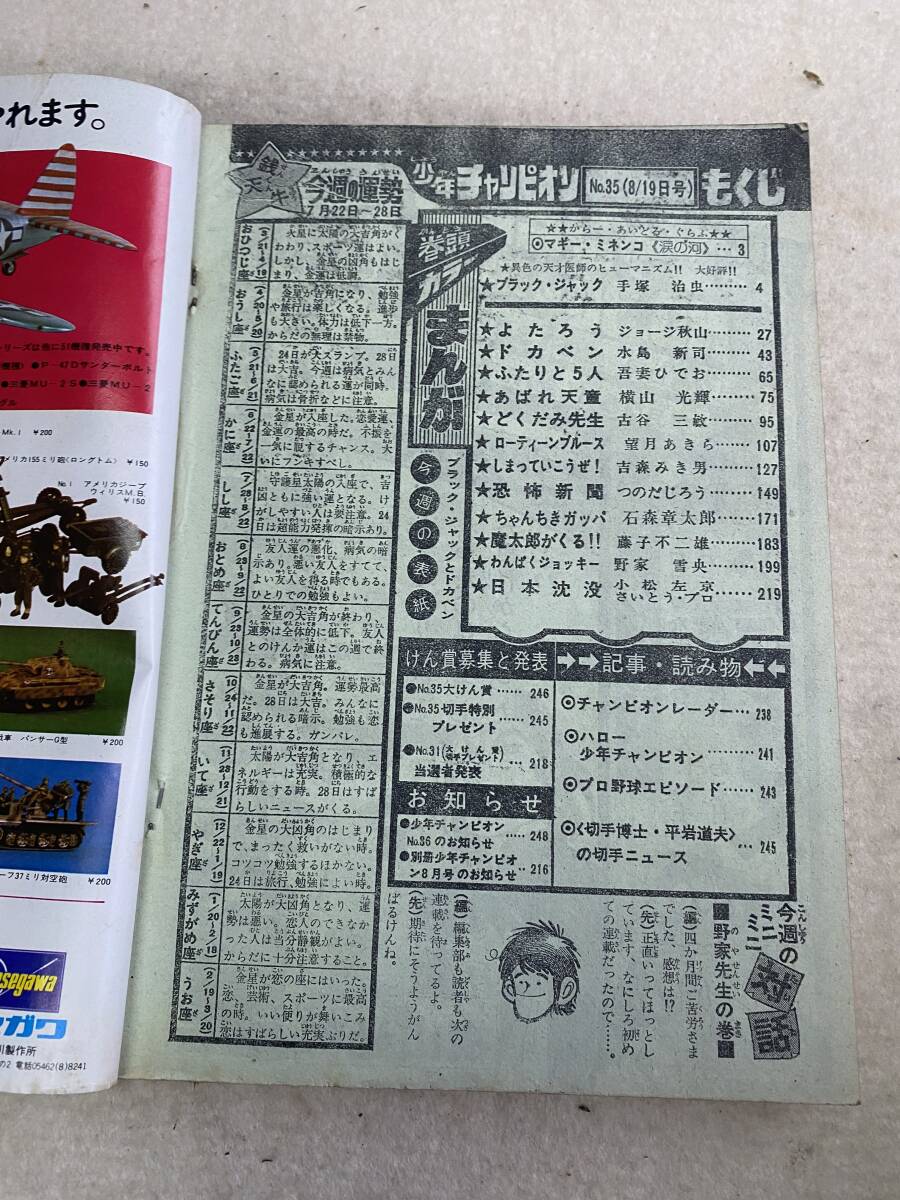 われます。
リーズは他に51機種発売中です。
●P-47Dサンダーボルト
●三菱MU-2S●三菱MU-2
Mk.1 ¥200
メリカ155ミリ砲(ロングトム) ¥150
No.1 アメリカジープ
ウィリスM.B.
¥150
パンサーG型 ¥200
ーフ37ミリ対空砲 ¥200
segawa
ガワ
川製作所
の2 電話05462(8)8241
銭天牛
今週の運勢
7月22日〜28日
おひつじ座
(3/21-4/19)
しかし、金星の凶角もはじ
まり、金運は低調。
おうし座
(4/20-5/20)
金星が吉角になり、勉強
や旅行は楽しくなる。進歩
も大きい。体力は低下一方。
からだの無理は禁物。
ふたご座
(5/21-6/21)
24日が大スランプ。28日
は大吉。今週は病気とみん
なに認められる運が同時。
病気は骨折などに注意。
かに座
(6/22-7/22)
金星が入座した。恋愛運、
金運の最高の時だ。不振を
一気に脱するチャンス。大
いにフンキすべし。
しし座
(7/23-8/22)
守護星太陽の入座で、吉
凶ともに強い運となる。け
がしやすい人は要注意。24
日は超能力発揮の暗示あり。
おとめ座
(8/23-9/22)
友人運の悪化、病気の暗
示あり。悪い友人をすてて、
よい友人を得る時でもある。
ひとりでの勉強もよい。
てんびん座
(9/23-10/23)
金星の大吉角が終わり、
運勢は全体的に低下。友人
とのけんか運はこの週で終
わる。病気に注意。
さそり座
(10/24-11/22)
金星が大吉角。運勢最高
だ。28日は大吉。みんなに
認められる暗示。勉強も恋
も進展する。ガンバレ。
いて座
(11/23-12/21)
太陽が大吉角となり、エ
ネルギーは充実。積極的な
行動をする時。28日はすば
らしいニュースがくる。
やぎ座
(12/22-1/19)
金星の大凶角のはじまり
で、まったく救いがない時。
コツコツ勉強するほかない。
24日は旅行、勉強によい時。
みずがめ座
(1/20-2/18)
太陽が大凶角となり、運
勢は悪い。恋人のできなか
った人は当分静観がよい。
からだに十分注意すること。
うお座
(2/19-3/20)
金星が恋の座にはいった。
恋、芸術、スポーツに最高
の時。いい便りが舞いこみ
恋はすばらしい充実ぶりだ。
少年チャンピオン No.35(8/19日号) もくじ
巻頭カラー
まんが
★★からー・あいどる・ぐらふ★★
◎マギー・ミネンコ《涙の河》…3
★異色の天才医師のヒューマニズム!! 大好評!!
★ブラック・ジャック 手塚治虫………4
★よたろう ジョージ秋山………27
★ドカベン 水島新司………43
★ふたりと5人 吾妻ひでお………65
★あばれ天童 横山光輝………75
★どくだみ先生 古谷三敏………95
★ローティーンブルース 望月あきら………107
★しまっていこうぜ! 吉森みき男………127
★恐怖新聞 つのだじろう………149
★ちゃんちきガッパ 石森章太郎………171
★魔太郎がくる!! 藤子不二雄………183
★わんぱくジョッキー 野家雪央………199
★日本沈没 小松左京
さいとう・プロ………219
今週の・表紙
ブラック・ジャックとドカベン
けん賞募集と発表
●No.35大けん賞……246
●No.35切手特別
プレゼント……245
●No.31(大けん賞
切手プレゼント)
当選者発表……218
お知らせ
●少年チャンピオン
No.36のお知らせ……248
●別冊少年チャンピオ
ン8月号のお知らせ…216
→→記事・読み物←←
◎チャンピオンレーダー…238
◎ハロー
少年チャンピオン……241
◎プロ野球エピソード……243
◎〈切手博士・平岩道夫〉
の切手ニュース……245
今週の
ミニミニ
対話
野家先生の巻
(編)四か月間ご苦労さま
でした。感想は!?
(先)正直いってほっとし
ています、なにしろ初め
ての連載だったので……。
(編)編集部も読者も次の
連載を待ってるよ。
(先)期待にそうようがん
ばるけんね。